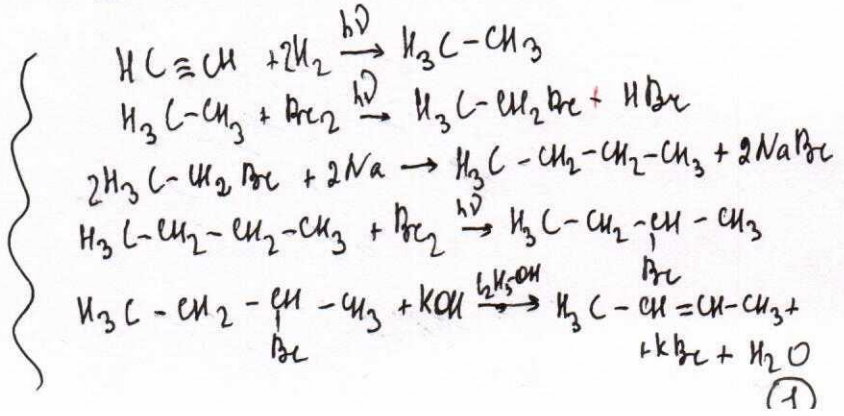 HC≡CH + 2H₂ –hν→ H₃C–CH₃
H₃C–CH₃ + Br₂ –hν→ H₃C–CH₂Br + HBr
2H₃C–CH₂Br + 2Na → H₃C–CH₂–CH₂–CH₃ + 2NaBr
H₃C–CH₂–CH₂–CH₃ + Br₂ –hν→ H₃C–CH₂–CH–CH₃
Br
H₃C–CH₂–CH–CH₃ + KOH –C₂H₅–OH→ H₃C–CH=CH–CH₃ +
Br
+ KBr + H₂O
1